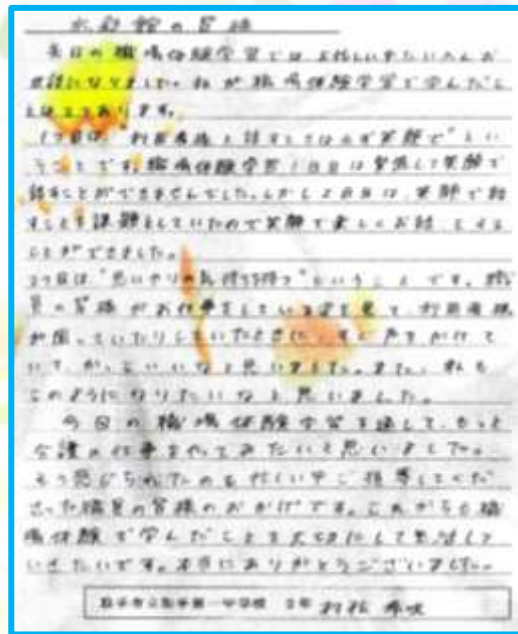 水彩館の皆様
先日の職場体験学習ではお忙しい中たいへんお
世話になりました。私が職場体験学習で学んだこ
とは2つあります。
1つ目は、利用者様と話すときは必ず笑顔で"とい
うことです。職場体験学習1日目は緊張して笑顔で
話すことができませんでした。しかし2日目は、笑顔で話
すことを課題としていたので笑顔で楽しくお話しする
ことができました。
2つ目は"思いやりの気持ち持つ"ということです。職
員の皆様がお仕事をしている姿を見て、利用者様
が困っていたりしていたときに、すぐ声をかけて
いて、かっこいいなと思いました。また、私も
このようになりたいなと思いました。
今回の職場体験学習を通して、もっと
介護の仕事をやってみたいと思いました。
そう感じられたのも忙しい中ご指導してくだ
さった職員の皆様のおかげです。これからも職
場体験で学んだことを大切にして生活して
いきたいです。本当にありがとうございました。
取手市立取手第一中学校 2年